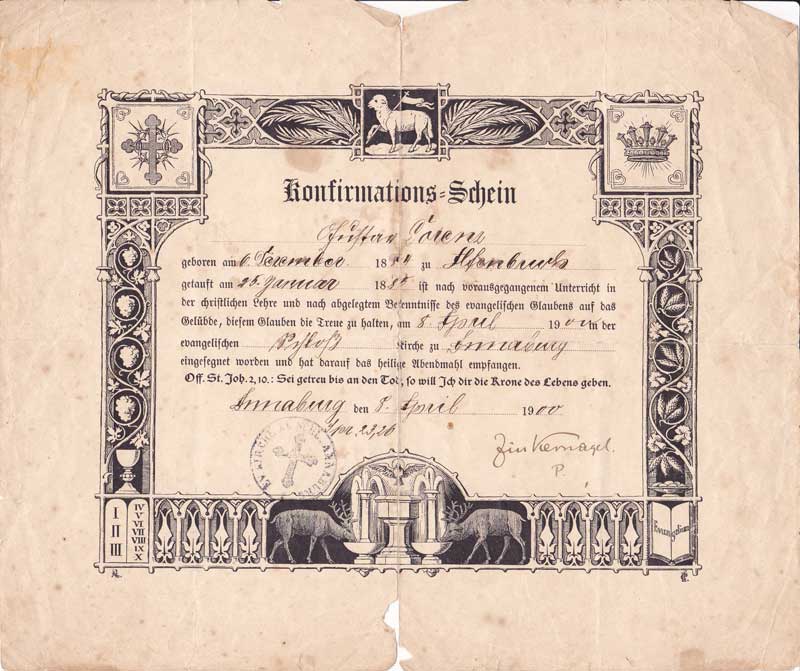 Konfirmations-Schein
Gustav Lorenz
geboren am 6 Dezember 18 zu
getauft am 25. Januar 188 ist nach vorausgegangenem Unterricht in
der christlichen Lehre und nach abgelegtem Bekenntnisse des evangelischen Glaubens auf das
Gelübde, diesem Glauben die Treue zu halten, am 8 April 1900 in der
evangelischen Schloß Kirche zu Annaburg
eingesegnet worden und hat darauf das heilige Abendmahl empfangen.
Off. St. Joh. 2, 10.: Sei getreu bis an den Tod, so will Ich dir die Krone des Lebens geben.
Annaburg den 8. April 1900
Spr. 23,26
P.
I II III
IV V VI VII VIII IX X
Evangelium